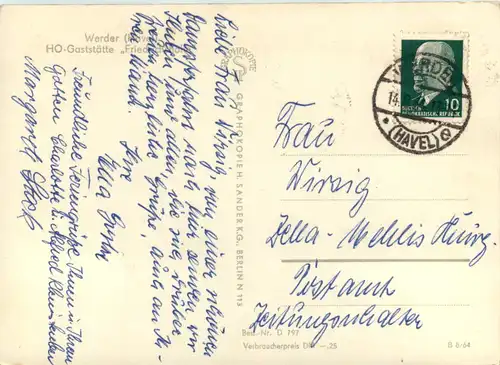 Werder (Havel)
HO-Gaststätte „Friedrichshöhe"
Liebe Frau Wirzig, von einer schönen
Dampferfahrt nach hier senden wir
Ihnen
recht herzliche Grüße, auch an Ih-
ren Mann
Ihre
Freundliche Feriengrüße Ihnen u. Ihrem
Gatten Charlotte u. Alfred
Margarete
GRAPHOKOPIE H. SANDER K.G., BERLIN N 113
WERDER
14.
(HAVEL)
10
DEUTSCHE
DEMOKRATISCHE REPUBLIK
Frau
Wirzig
Zella-Mehlis Thürg.
Postamt
Zeitungsschalter
Best.-Nr. D 797
Verbraucherpreis DM -,25
B 6/64